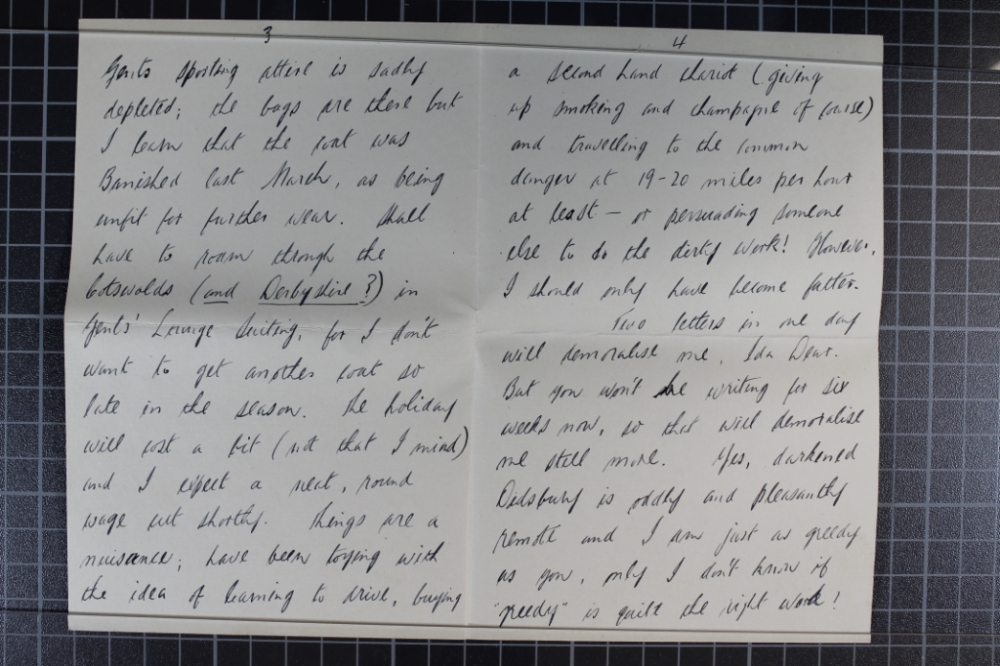 3
Gents sporting attire is sadly
depleted; the bags are there but
I learn that the coat was
Banished last March, as being
unfit for further wear. Shall
have to roam through the
Cotswolds (and Derbyshire?) in
Gents' Lounge Suiting, for I don't
want to get another coat so
late in the season. The holiday
will cost a bit (not that I mind)
and I expect a neat, round
wage cut shortly. Things are a
nuisance; have been toying with
the idea of learning to drive, buying
4
a second hand chariot (giving
up smoking and champagne of course)
and travelling to the common
danger at 19-20 miles per hour
at least - or persuading someone
else to do the dirty work! However,
I should only have become fatter.
Two letters in one day
will demoralise me, Ida Dear.
But you won't be writing for six
weeks now, so that will demoralise
me still more. Yes, darkened
Didsbury is oddly and pleasantly
remote and I am just as greedy
as you, only I don't know if
"greedy" is quite the right word!